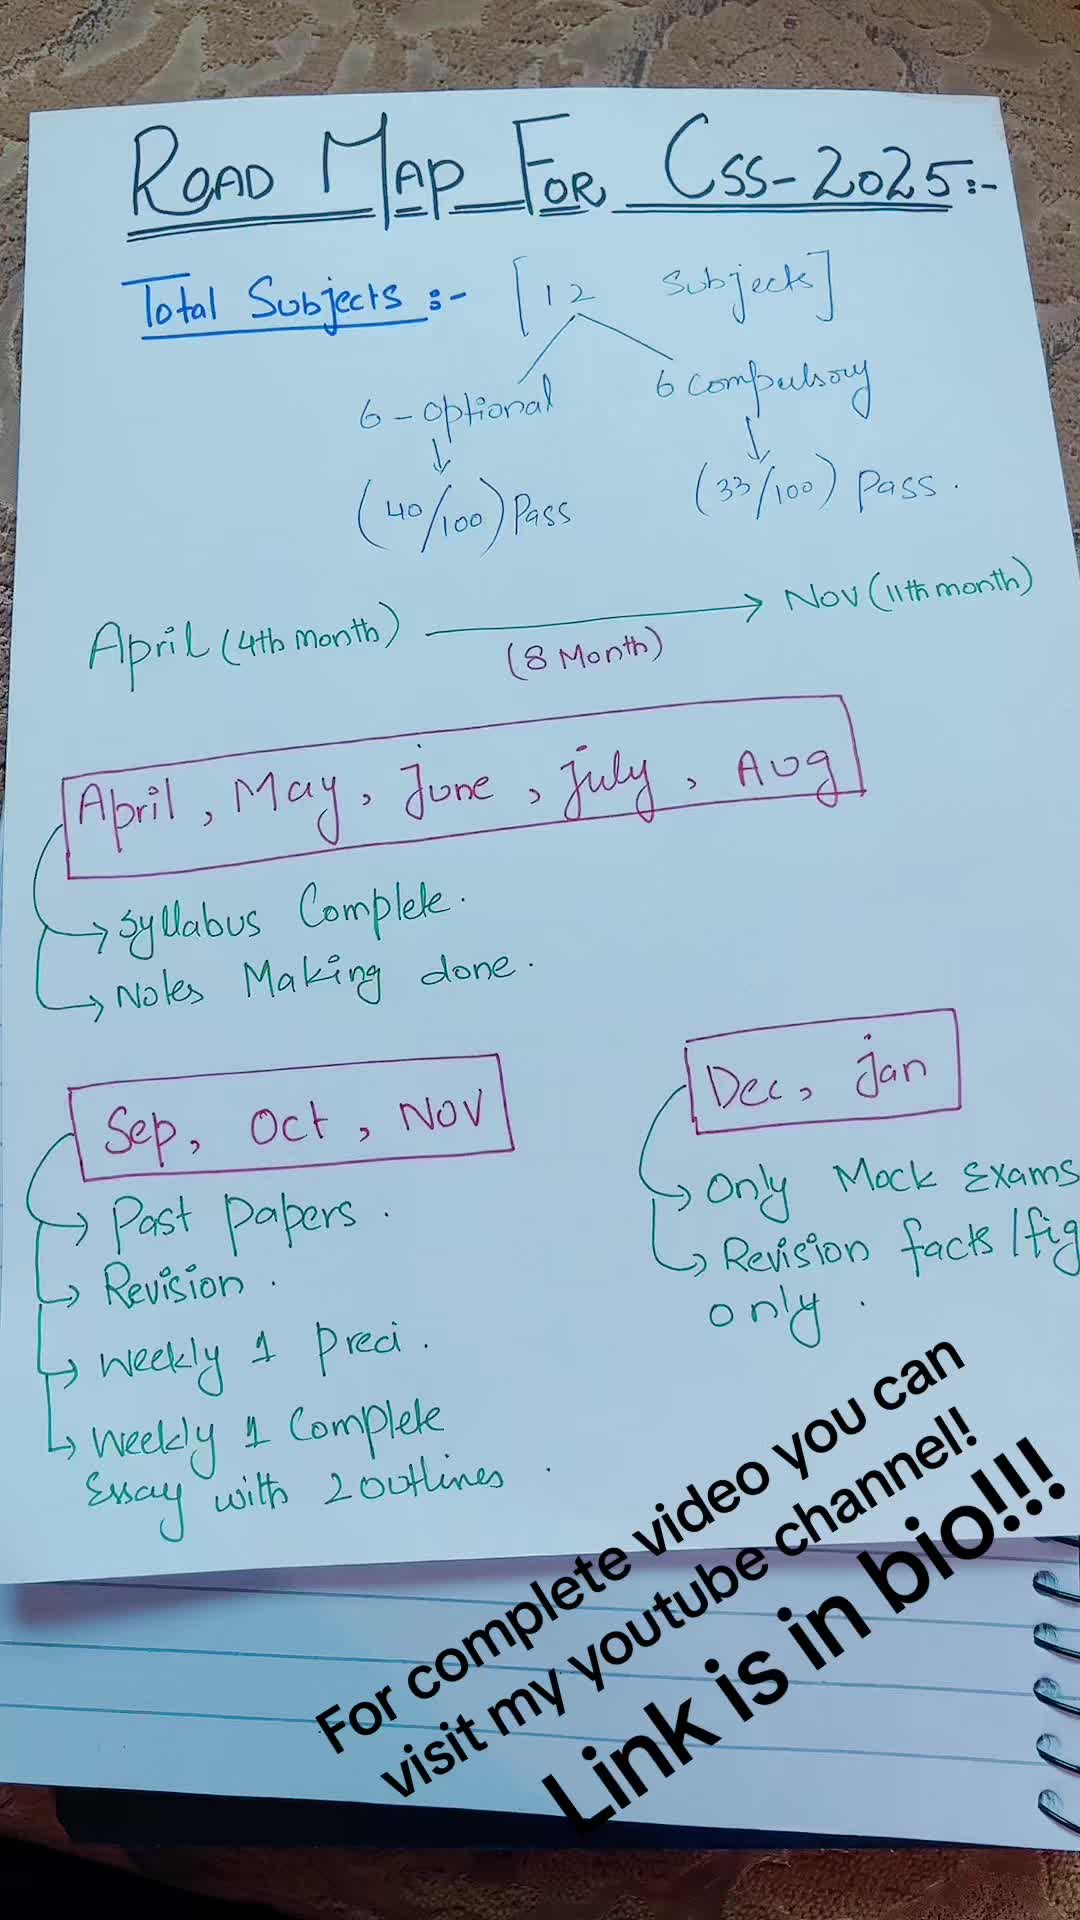 ROAD MAP FOR CSS-2025:-
Total Subjects :- [12 Subjects]
6-optional
6 compulsory
(40/100) Pass
(33/100) Pass.
April (4th month)
(8 Month)
Nov (11th month)
April, May, June, July, Aug
Syllabus Complete.
Notes Making done.
Sep, Oct, Nov
Past papers.
Revision.
Weekly 1 Preci.
Weekly 1 Complete
Essay with 2 outlines.
Dec, Jan
Only Mock Exams
Revision facts/fig
only.
For complete video you can
visit my youtube channel!
Link is in bio!!!